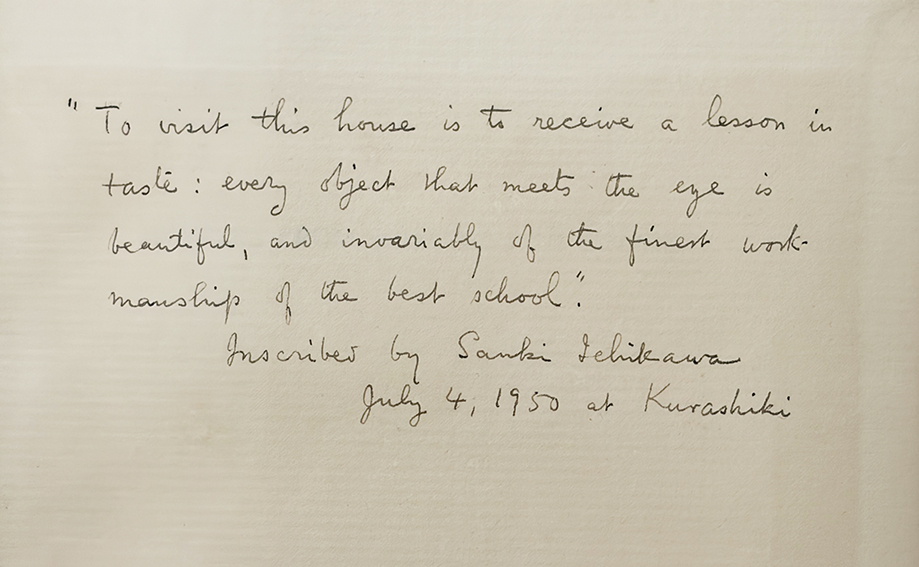 "To visit this house is to receive a lesson in
taste: every object that meets the eye is
beautiful, and invariably of the finest work-
manship of the best school".
Inscribed by Sanki Ichikawa
July 4, 1950 at Kurashiki